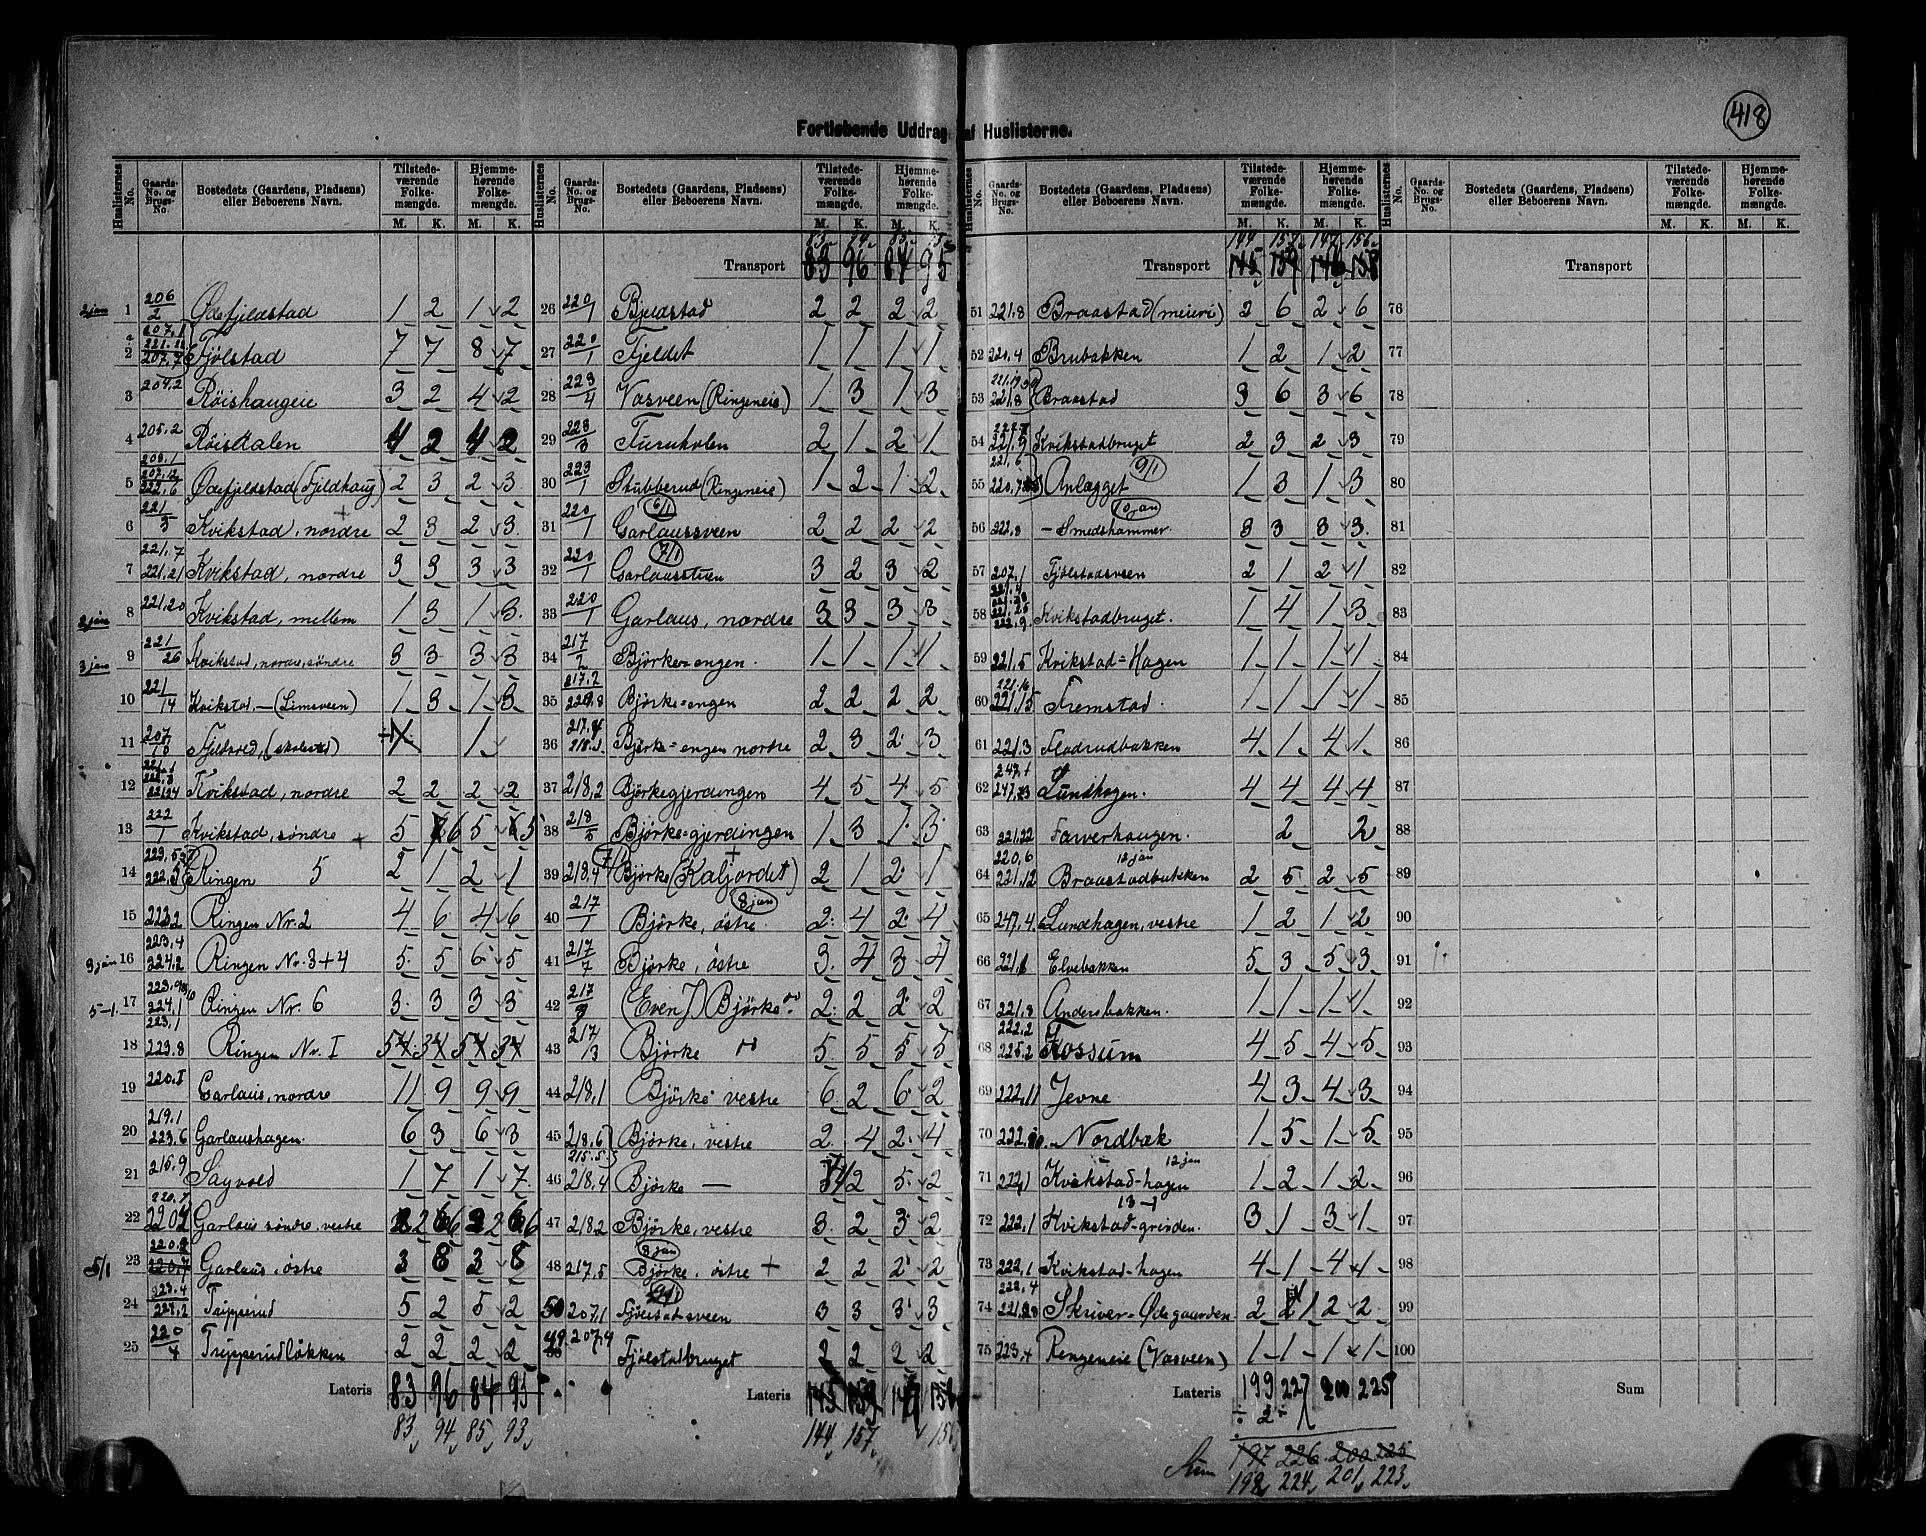 418
Fortløbende Uddrag af Huslisterne.
Huslisternes No. Gaards-No. og Brugs-No. Bostedets (Gaardens, Pladsens) eller Beboerens Navn. Tilstedeværende Folkemængde. M. K. Hjemmehørende Folkemængde. M. K.
2 jan 1 206/2 Ødefjeldstad 1 2 1 2
2 Fjølstad 7 7 8 7
3 207,2 Røishaugen 3 2 4 2
4 205,2 Røisdalen 4 2 4 2
5 208,1 207,12 222,6 Ødefjeldstad (Fjeldhaug) 2 3 2 3
6 221/3 Kvikstad, nordre 2 3 2 3
7 221,7 221,21 Kvikstad, nordre 3 3 3 3
2 jan 8 221,20 Kvikstad, mellem 1 3 1 3
3 jan 9 221/26 Kvikstad, nordre, søndre 3 3 3 3
10 221/14 Kvikstad, — (Limsveen) 1 3 1 3
11 207/10 (skolested) 1
12 221,24 Kvikstad, nordre 2 2 2 2
13 222/1 Kvikstad, søndre + 5 6 5 5
14 Ringen 5 2 1 2 1
15 223,2 Ringen Nr. 2 4 6 4 6
3 jan 16 223,4 224,2 Ringen Nr. 3+4 5 5 6 5
5-1 17 224,1 Ringen Nr. 6 3 3 3 3
18 223,1 223,8 Ringen Nr. I 5 3 5 3
19 220,1 Garlaus, nordre 11 9 9 9
20 219,1 223,6 Garlaushagen 6 3 6 3
21 215,9 Sagvold 1 7 1 7
22 Garlaus søndre, vestre 2 6 2 6
5/1 23 Garlaus, østre 3 8 3 8
24 223,4 224,2 Tripperud 5 2 5 2
25 220/4 Tripperudløkken 2 2 2 2
Lateris 83 96 84 95
83 94 85 93
Huslisternes No. Gaards-No. og Brugs-No. Bostedets (Gaardens, Pladsens) eller Beboerens Navn. Tilstedeværende Folkemængde. M. K. Hjemmehørende Folkemængde. M. K.
Transport 83 96 84 95
26 220/1 Bjeldstad 2 2 2 2
27 220/1 Fjeldet 1 1 1 1
28 223/4 Vasveen (Ringeneie) 1 3 1 3
29 223/3 Furuholen 2 1 2 1
30 223/1 Stubberud (Ringeneie) 1 2 1 2
31 220/1 Garlaussveen 6/1 2 2 2 2
32 220/1 Garlausstuen 7/1 3 2 3 2
33 220/1 Garlaus, nordre 3 3 3 3
34 217/2 Bjørke-engen 1 1 1 1
35 217,2 Bjørke-engen 2 2 2 2
36 218,1 Bjørke-engen nordre 2 3 2 3
37 218,2 Bjørkegjerdingen 4 5 4 5
38 218/5 Bjørke-gjerdingen 1 3 1 3
39 218,4 7/1 Bjørke (Kaljordet) 2 1 2 1
40 217/1 Bjørke, østre 8 jan 2 4 2 4
41 217/7 Bjørke, østre 3 4 3 4
42 217 (Even J) Bjørke 2 2 2 2
43 217/3 Bjørke 5 5 5 5
44 218,1 Bjørke vestre 6 2 6 2
45 218,6 Bjørke, vestre 2 4 2 4
46 215,5 218,4 Bjørke — 2 5 2
47 218,2 Bjørke, vestre 3 2 3 2
48 217,5 8 jan Bjørke, østre + 2 2 2 2
50 207,1 9/1 Fjølstadsveen 3 3 3 3
49 207,4 Fjølstadbruget 2 2 2 2
Lateris 145 159
144 157
Huslisternes No. Gaards-No. og Brugs-No. Bostedets (Gaardens, Pladsens) eller Beboerens Navn. Tilstedeværende Folkemængde. M. K. Hjemmehørende Folkemængde. M. K.
144 157 147 156
Transport 145 159 146 158
51 221,8 Braastad (meieri) 2 6 2 6
52 220,4 Brubakken 1 2 1 2
53 221,8 Braastad 3 6 3 6
54 221,9 Kvikstadbruget 2 3 2 3
55 221,6 220,7 Anlægget 9/1 1 3 1 3
56 222,8 — Smedshammer 10 jan 3 3 3 3
57 207,1 Fjølstadsveen 2 1 2 1
58 222,9 Kvikstadbruget. 1 4 1 3
59 221,5 Kvikstad-Hagen 1 1 1 1
60 221,16 221,15 Fremstad 1 1 1 1
61 221,3 Fladrudbakken 4 1 4 1
62 247,1 Lundhagen. 4 4 4 4
63 221,22 Farverhaugen. 2 2
64 220,6 221,12 12 jan Braastadbakken 2 5 2 5
65 247,4 Lundhagen, vestre 1 2 1 2
66 Elvebakken 5 3 5 3
67 221,8 Andersbakken. 1 1 1 1
68 222,2 225,2 Fossum 4 5 4 5
69 222,11 Jevne 4 3 4 3
70 Nordbæk 1 5 1 5
71 222,1 Kvikstad-hagen 12 jan 1 2 1 2
72 222,1 13-1 Kvikstad-grinden. 3 1 3 1
73 222,1 Kvikstad-hagen 4 1 4 1
74 222,4 Skriver-Ødegaarden 2 1 2 2
75 223,4 Ringeneie (Vasveen) 1 1 1 1
Lateris 199 227 200 225
÷ 2 ÷ 1
Sum 197 226 200 225
198 224 201 223
Huslisternes No. Gaards-No. og Brugs-No. Bostedets (Gaardens, Pladsens) eller Beboerens Navn. Tilstedeværende Folkemængde. M. K. Hjemmehørende Folkemængde. M. K.
Transport
76
77
78
79
80
81
82
83
84
85
86
87
88
89
90
91
92
93
94
95
96
97
98
99
100
Sum